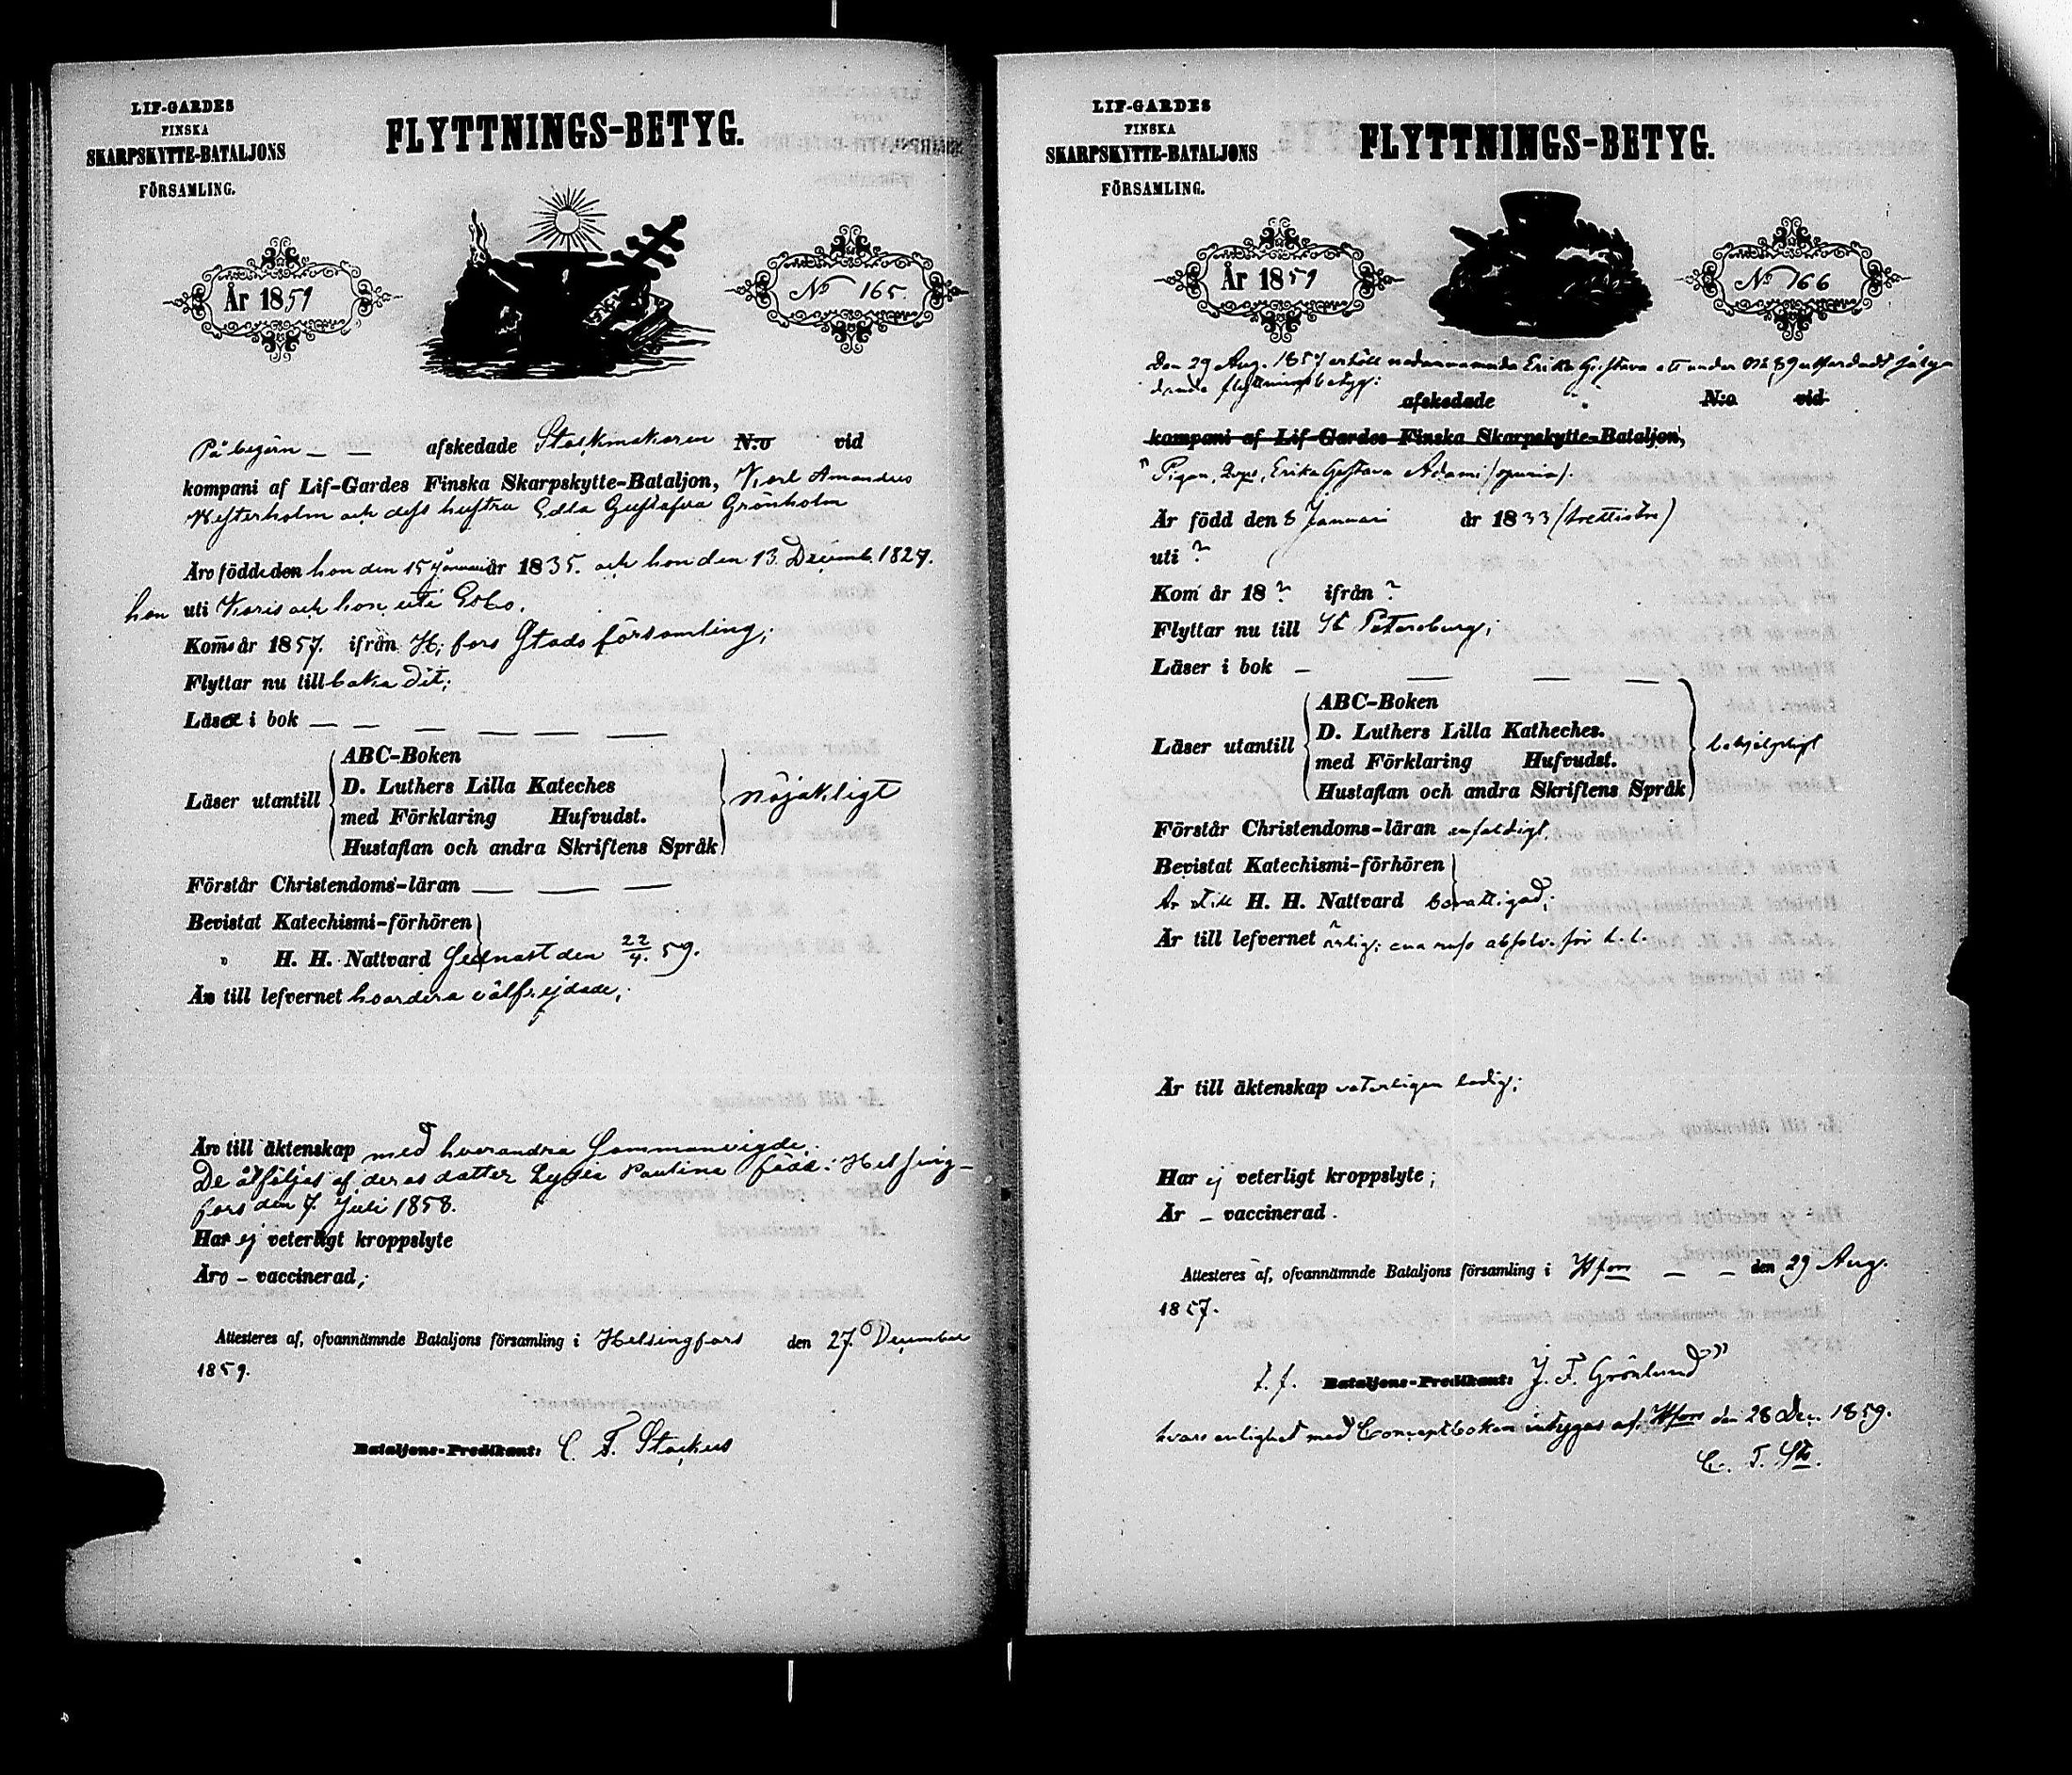 LIF-GARDES
FINSKA
SKARPSKYTTE-BATALJONS
FÖRSAMLING.
FLYTTNINGS-BETYG.
År 1859
No 165.
På begärn — — afskedade Stockmakaren N:o vid
kompani af Lif-Gardes Finska Skarpskytte-Bataljon, Karl Amandus
Westerholm och dess hustru Edla Gustafva Grönholm
Äro födde den han den 15 Januari år 1835. och hon den 13. Decemb. 1827.
han uti Karis och hon uti Esbo.
Kommo år 1857. ifrån H:fors Stads församling;
Flyttar nu till baka dit;
Läser i bok — — — — — —
Läser utantill
ABC-Boken
D. Luthers Lilla Kateches
med Förklaring Hufvudst.
Hustaflan och andra Skriftens Språk
nöjaktigt
Förstår Christendoms-läran — — —
Bevistat Katechismi-förhören
„ H. H. Nattvard Sednast den 22/4. 59.
Äro till lefvernet hvardera välfrejdade;
Äro till äktenskap med hvarandra Sammanvigde.
De åtföljas af deras dotter Lydia Paulina född i Helsing-
fors den 7. Juli 1858.
Har ej veterligt kroppslyte
Äro – vaccinerad;
Attesteras af, ofvannämnde Bataljons församling i Helsingfors den 27. December
1859.
Bataljons-Predikant: C. F. Stackus
LIF-GARDES
FINSKA
SKARPSKYTTE-BATALJONS
FÖRSAMLING.
FLYTTNINGS-BETYG.
År 1859
No 166
Den 29 Aug. 1857 erhöll nedannämnda Erika Gustava ett under No 89 utfärdadt såly-
dande flyttningsbetyg:
afskedade N:o vid
kompani af Lif-Gardes Finska Skarpskytte-Bataljon,
" Pigan, Erika Gustava Adami /spuria/.
Är född den 8 Januari år 1833 (trettiotre)
uti ?
Kom år 18 ? ifrån ?
Flyttar nu till St Petersburg;
Läser i bok — — — —
Läser utantill
ABC-Boken
D. Luthers Lilla Katheches.
med Förklaring Hufvudst.
Hustaflan och andra Skriftens Språk
behjelpligt
Förstår Christendoms-läran enfaldigt.
Bevistat Katechismi-förhören
Är till H. H. Nattvard berättigad;
Är till lefvernet ärlig; absolv. för L. L.
Är till äktenskap veterligen ledig;
Har ej veterligt kroppslyte;
Är – vaccinerad.
Attesteres af, ofvannämnde Bataljons församling i Hfors — — den 29 Aug.
1857.
t. f. Bataljons-Predikant: J. F. Grönlund"
hvars enlighet med Conceptboken intygas af. Hfors den 28 Dec. 1859.
C. F. St.